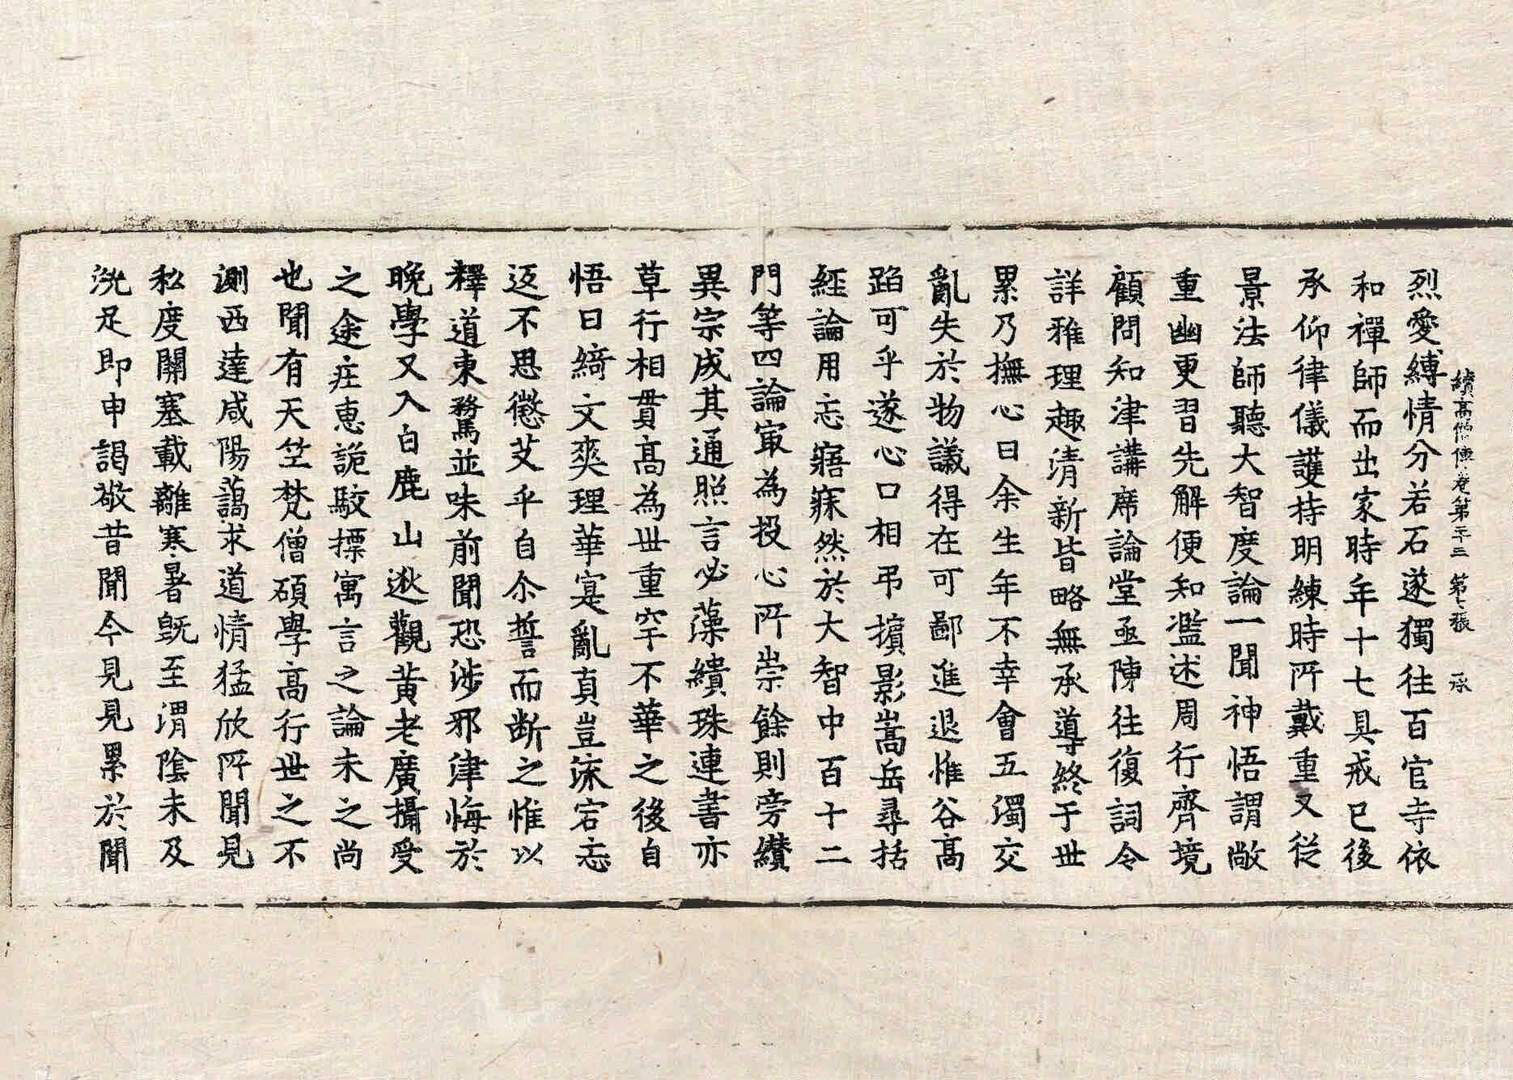 續高僧傳卷第二十三 第七張 承
烈愛縛情分若石遂獨往百官寺依
和禪師而出家時年十七具戒已後
承仰律儀護持明練時所戴重又從
景法師聽大智度論一聞神悟謂敞
重幽更習先解便知濫述周行齊境
顧問知津講席論堂亟陳往復詞令
詳雅理趣清新皆略無承導終于世
累乃撫心曰余生年不幸會五濁交
亂失於物議得在可鄙進退惟谷高
蹈可乎遂心口相弔擯影嵩岳尋括
經論用忘寤寐然於大智中百十二
門等四論㝡為投心所崇餘則旁纘
異宗成其通照言必藻繢珠連書亦
草行相貫高為世重罕不華之後自
悟曰綺文爽理華寔亂真豈流宕忘
返不思懲艾乎自尒誓而断之惟以
釋道東鶩並味前聞恐涉邪律悔於
晚學又入白鹿山逖觀黃老廣攝受
之途庄惠詭駮摽寓言之論未之尚
也聞有天竺梵僧碩學高行世之不
測西達咸陽藹求道情猛欣所聞見
私度關塞載離寒暑旣至渭陰未及
洗足即申謁敬昔聞今見見累於聞